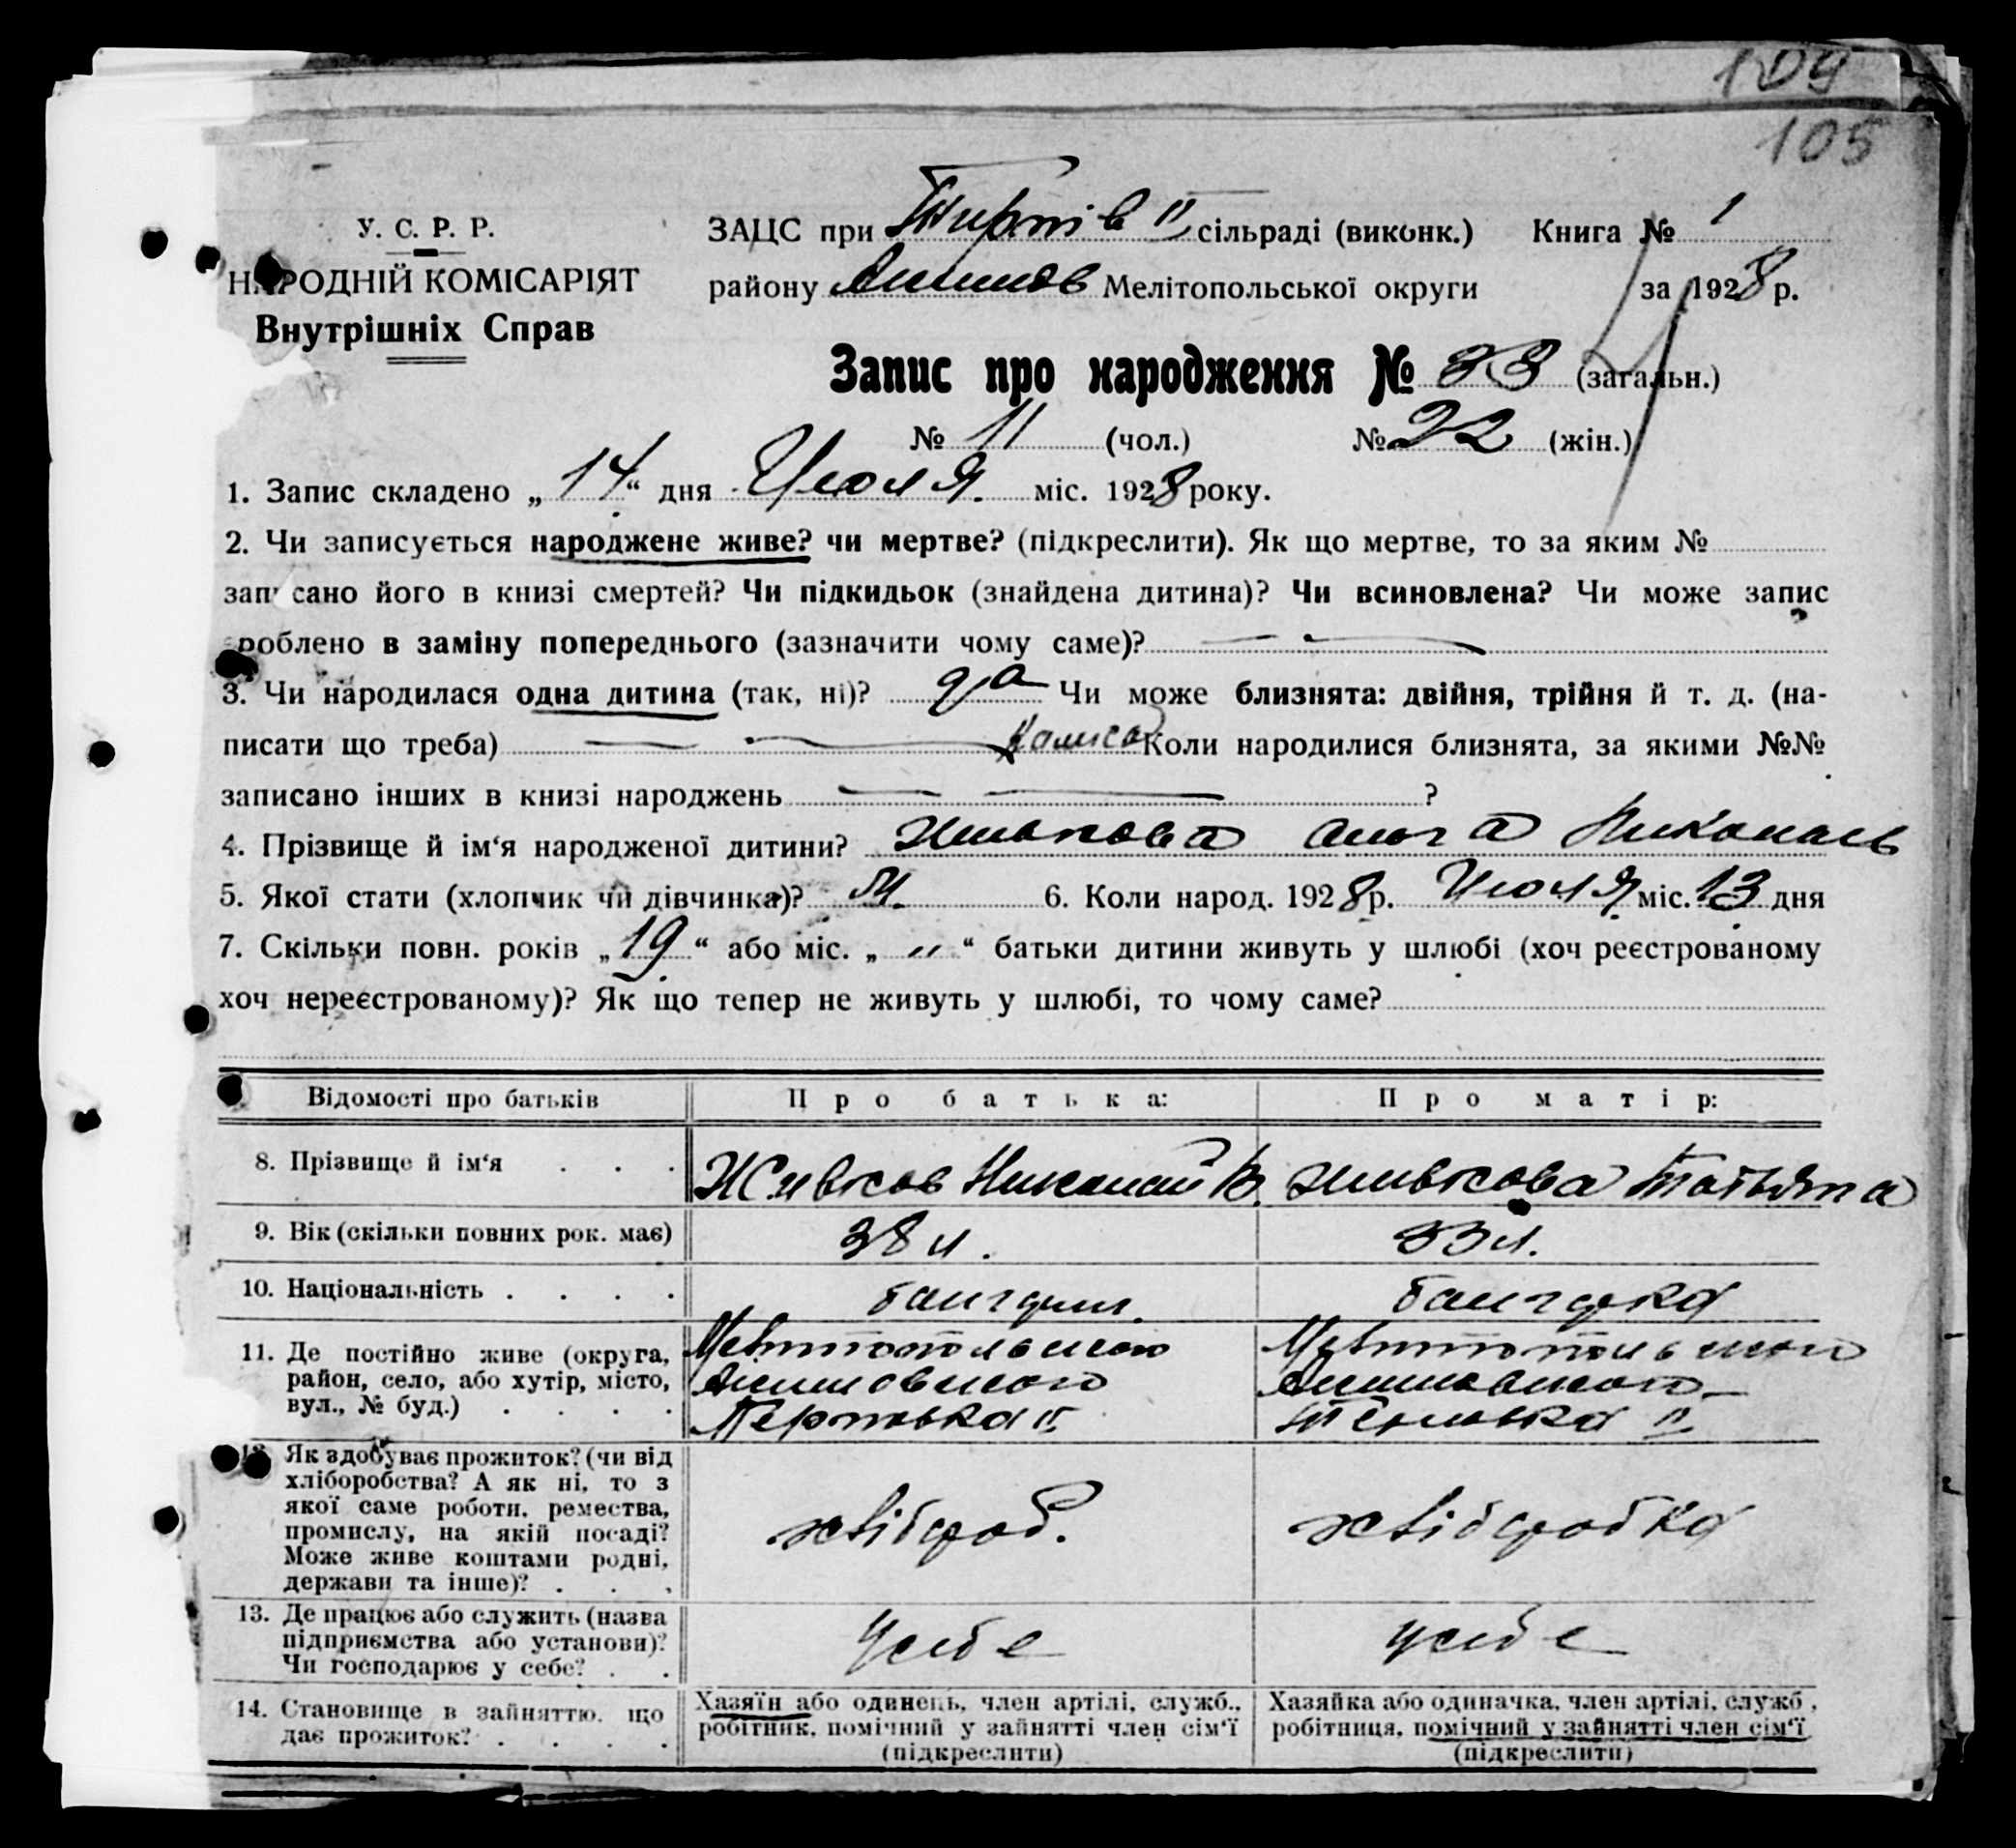 109
105
У. С. Р. Р.
НАРОДНІЙ КОМІСАРІЯТ
Внутрішніх Справ
ЗАЦС при II сільраді (виконк.) Книга № 1
району Мелітопольської округи за 1928 р.
Запис про народження № 33 (загальн.)
№ 11 (чол.) № 22 (жін.)
1. Запис складено „14“ дня Июля міс. 1928 року.
2. Чи записується народжене живе? чи мертве? (підкреслити). Як що мертве, то за яким №
записано його в книзі смертей? Чи підкидьок (знайдена дитина)? Чи всиновлена? Чи може запис
зроблено в заміну попереднього (зазначити чому саме)? —
3. Чи народилася одна дитина (так, ні)? да Чи може близнята: двійня, трійня й т. д. (на-
писати що треба) — Коли народилися близнята, за якими №№
записано інших в книзі народжень — — ?
4. Прізвище й ім‘я народженої дитини? Ольга
5. Якої стати (хлопчик чи дівчинка)? 6. Коли народ. 1928 р. Июля міс. 13 дня
7. Скільки повн. років „19“ або міс. „ “ батьки дитини живуть у шлюбі (хоч реєстрованому
хоч нереєстрованому)? Як що тепер не живуть у шлюбі, то чому саме?
Відомості про батьків Про батька: Про матір:
8. Прізвище й ім‘я . . . Живков Николай В. Живкова Татьяна
9. Вік (скільки повних рок. має) 38 л. 33 л.
10. Національність . . . . болгарин болгарка
11. Де постійно живе (округа,
район, село, або хутір, місто,
вул., № буд.) . . . .
12. Як здобуває прожиток? (чи від
хліборобства? А як ні, то з
якої саме роботи, ремества,
промислу, на якій посаді?
Може живе коштами родні,
держави та інше)? . . .
хлібороб. хліборобка
13. Де працює або служить (назва
підприємства або установи)?
Чи господарює у себе? . .
у себе у себе
14. Становище в зайняттю, що
дає прожиток? . . . .
Хазяїн або одинець, член артілі, служб.,
робітник, помічний у зайнятті член сім‘ї
(підкреслити)
Хазяйка або одиначка, член артілі, служб.,
робітниця, помічний у зайнятті член сім‘ї
(підкреслити)